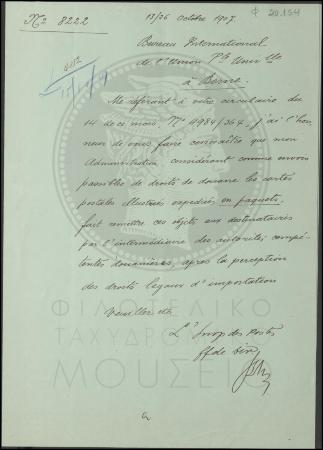 Nº 8222
13/26 Octobre 1907.
Φ 20.154
Bureau International
de l'Union Ple Univlle
à Berne.
Me référant à votre circulaire du
14 de ce mois, Nº 4984/364, j'ai l'hon-
neur de vous faire connaître que mon
Administration considérant comme envois
passibles de droits de douane les cartes
postales illustrées expédiées en paquets,
fait remettre ces objets aux destinataires
par l'intermédiaire des autorités compé-
tentes douanières, après la perception
des droits légaux d'importation
Veuillez etc
L' des Postes
ff de
ΦΙΛΟΤΕΛΙΚΟ
ΤΑΧΥΔΡΟΜΙΚΟ
ΜΟΥΣΕΙΟ